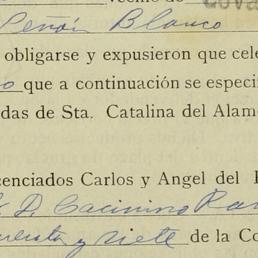 vecino de
Peñón Blanco
obligarse y expusieron que cele
que a continuación se especi
das de Sta. Catalina del Alam
cenciados Carlos y Angel del
y siete de la Co